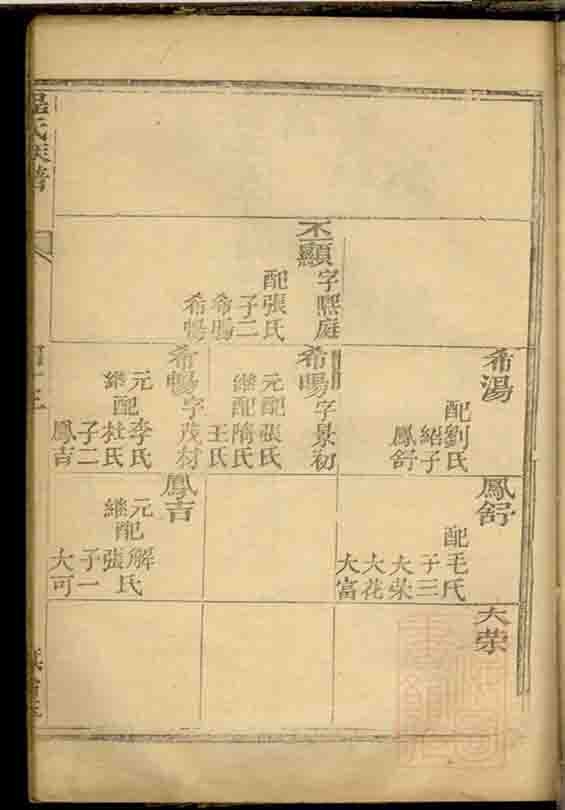 丕顯字熙庭
配張氏
子二
希暘
希暢
希湯
配劉氏
紹子
鳳舒
希暘字景初
元配張氏
繼配隋氏
王氏
希暢字茂材
元配李氏
繼配杜氏
子二
鳳吉
鳳舒
配毛氏
子三
大荣
大花
大富
鳳吉
元配解氏
繼配張氏
子一
大可
大荣
氏族譜